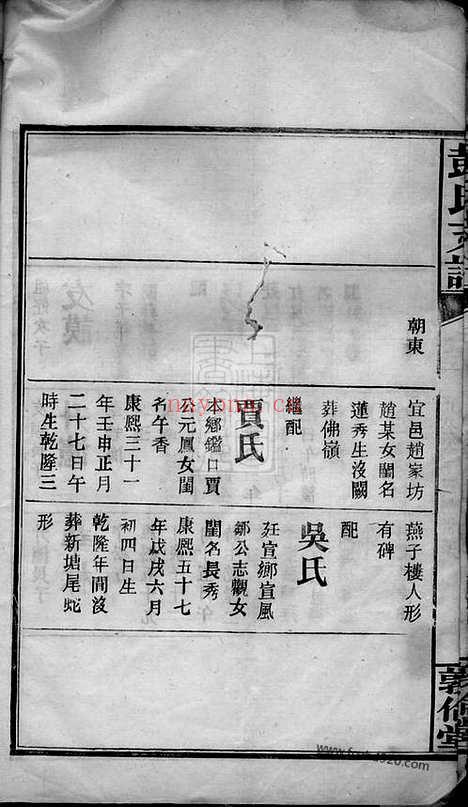 彭氏支譜
朝東
宜邑趙家坊
趙某女閨名
蓮秀生沒闕
葬佛嶺
繼配
賈氏
本鄉鑑口賈
公元鳳女閨
名午香
康熙三十一
年壬申正月
二十七日午
時生乾隆三
燕子樓人形
有碑
配
吳氏
廷宣鄉宣風
鄒公志觀女
閨名長秀
康熙五十七
年戊戌六月
初四日生
乾隆年間沒
葬新塘尾蛇
形
敦倫堂